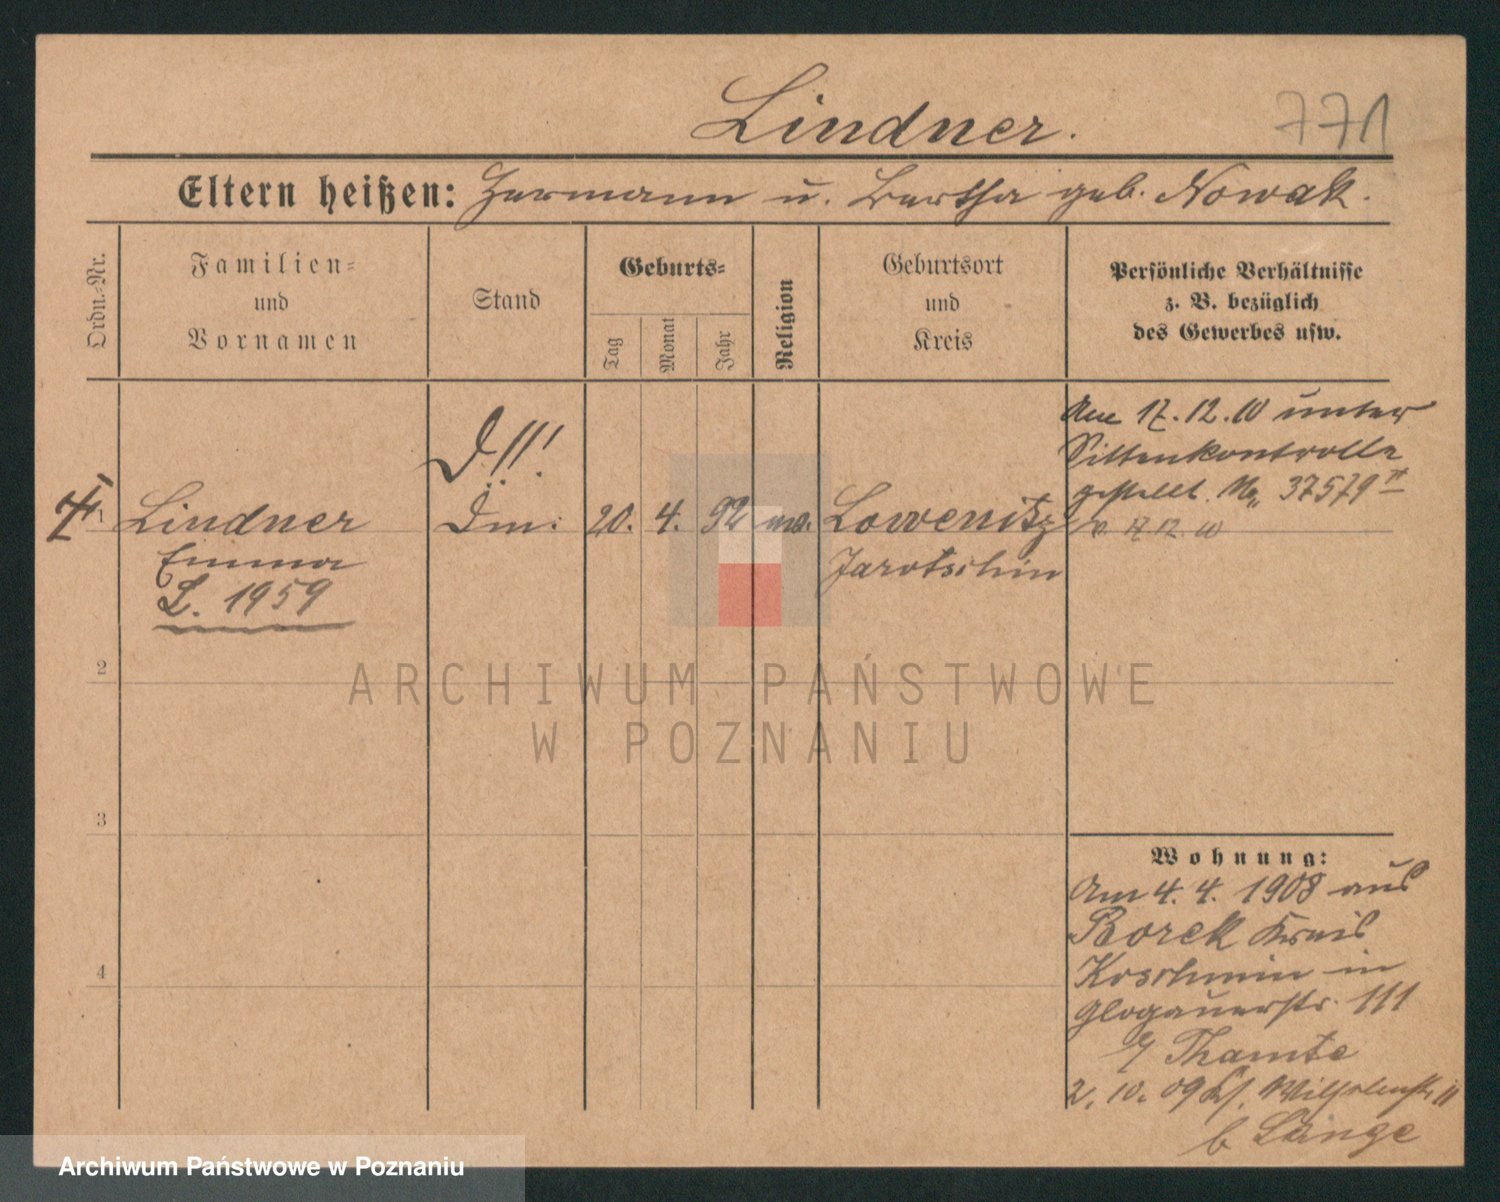 Lindner.
771
Eltern heißen: Hermann u. Bertha geb. Nowak.
Ordn.-Nr.
Familien-
und
Vornamen
Stand
Geburts-
Tag
Monat
Jahr
Religion
Geburtsort
und
Kreis
Persönliche Verhältnisse
z. B. bezüglich
des Gewerbes usw.
Am 17.12.10 unter
Sittenkontrolle
gestellt. 37579
v. 17.12.10
D!!!
1 Lindner
Dm. 20. 4. 92
Lowenitz
Emma
Jarotschin
L. 1959
2
3
4
Wohnung:
Am 4. 4. 1908 aus
Borek Kreis
Koschmin in
Glogauerstr. 111
b/ Thamte
2. 10. 09 Wilhelmstr. 11
b Lange
ARCHIWUM PAŃSTWOWE
W POZNANIU
Archiwum Państwowe w Poznaniu